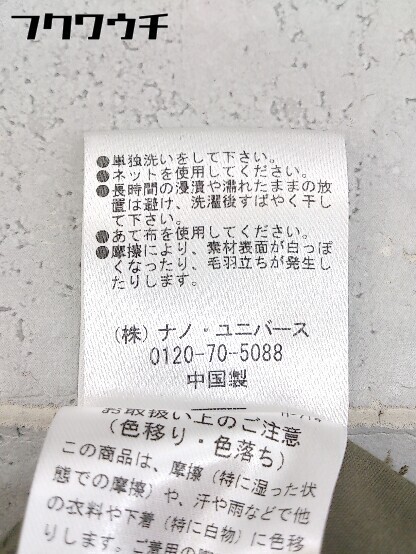 フクウウチ
●単独洗いをして下さい。
●ネットを使用してください。
●長時間の浸漬や濡れたままの放
置は避け、洗濯後すばやく干し
て下さい。
●あて布を使用してください。
●摩擦により、素材表面が白っぽ
くなったり、毛羽立ちが発生し
たりします。
(株) ナノ・ユニバース
0120-70-5088
中国製
お取扱い上のご注意
(色移り・色落ち)
この商品は、摩擦(特に湿った状
態での摩擦)や、汗や雨などで他
の衣料や下着(特に白物)に色移
りします。ご着用の際